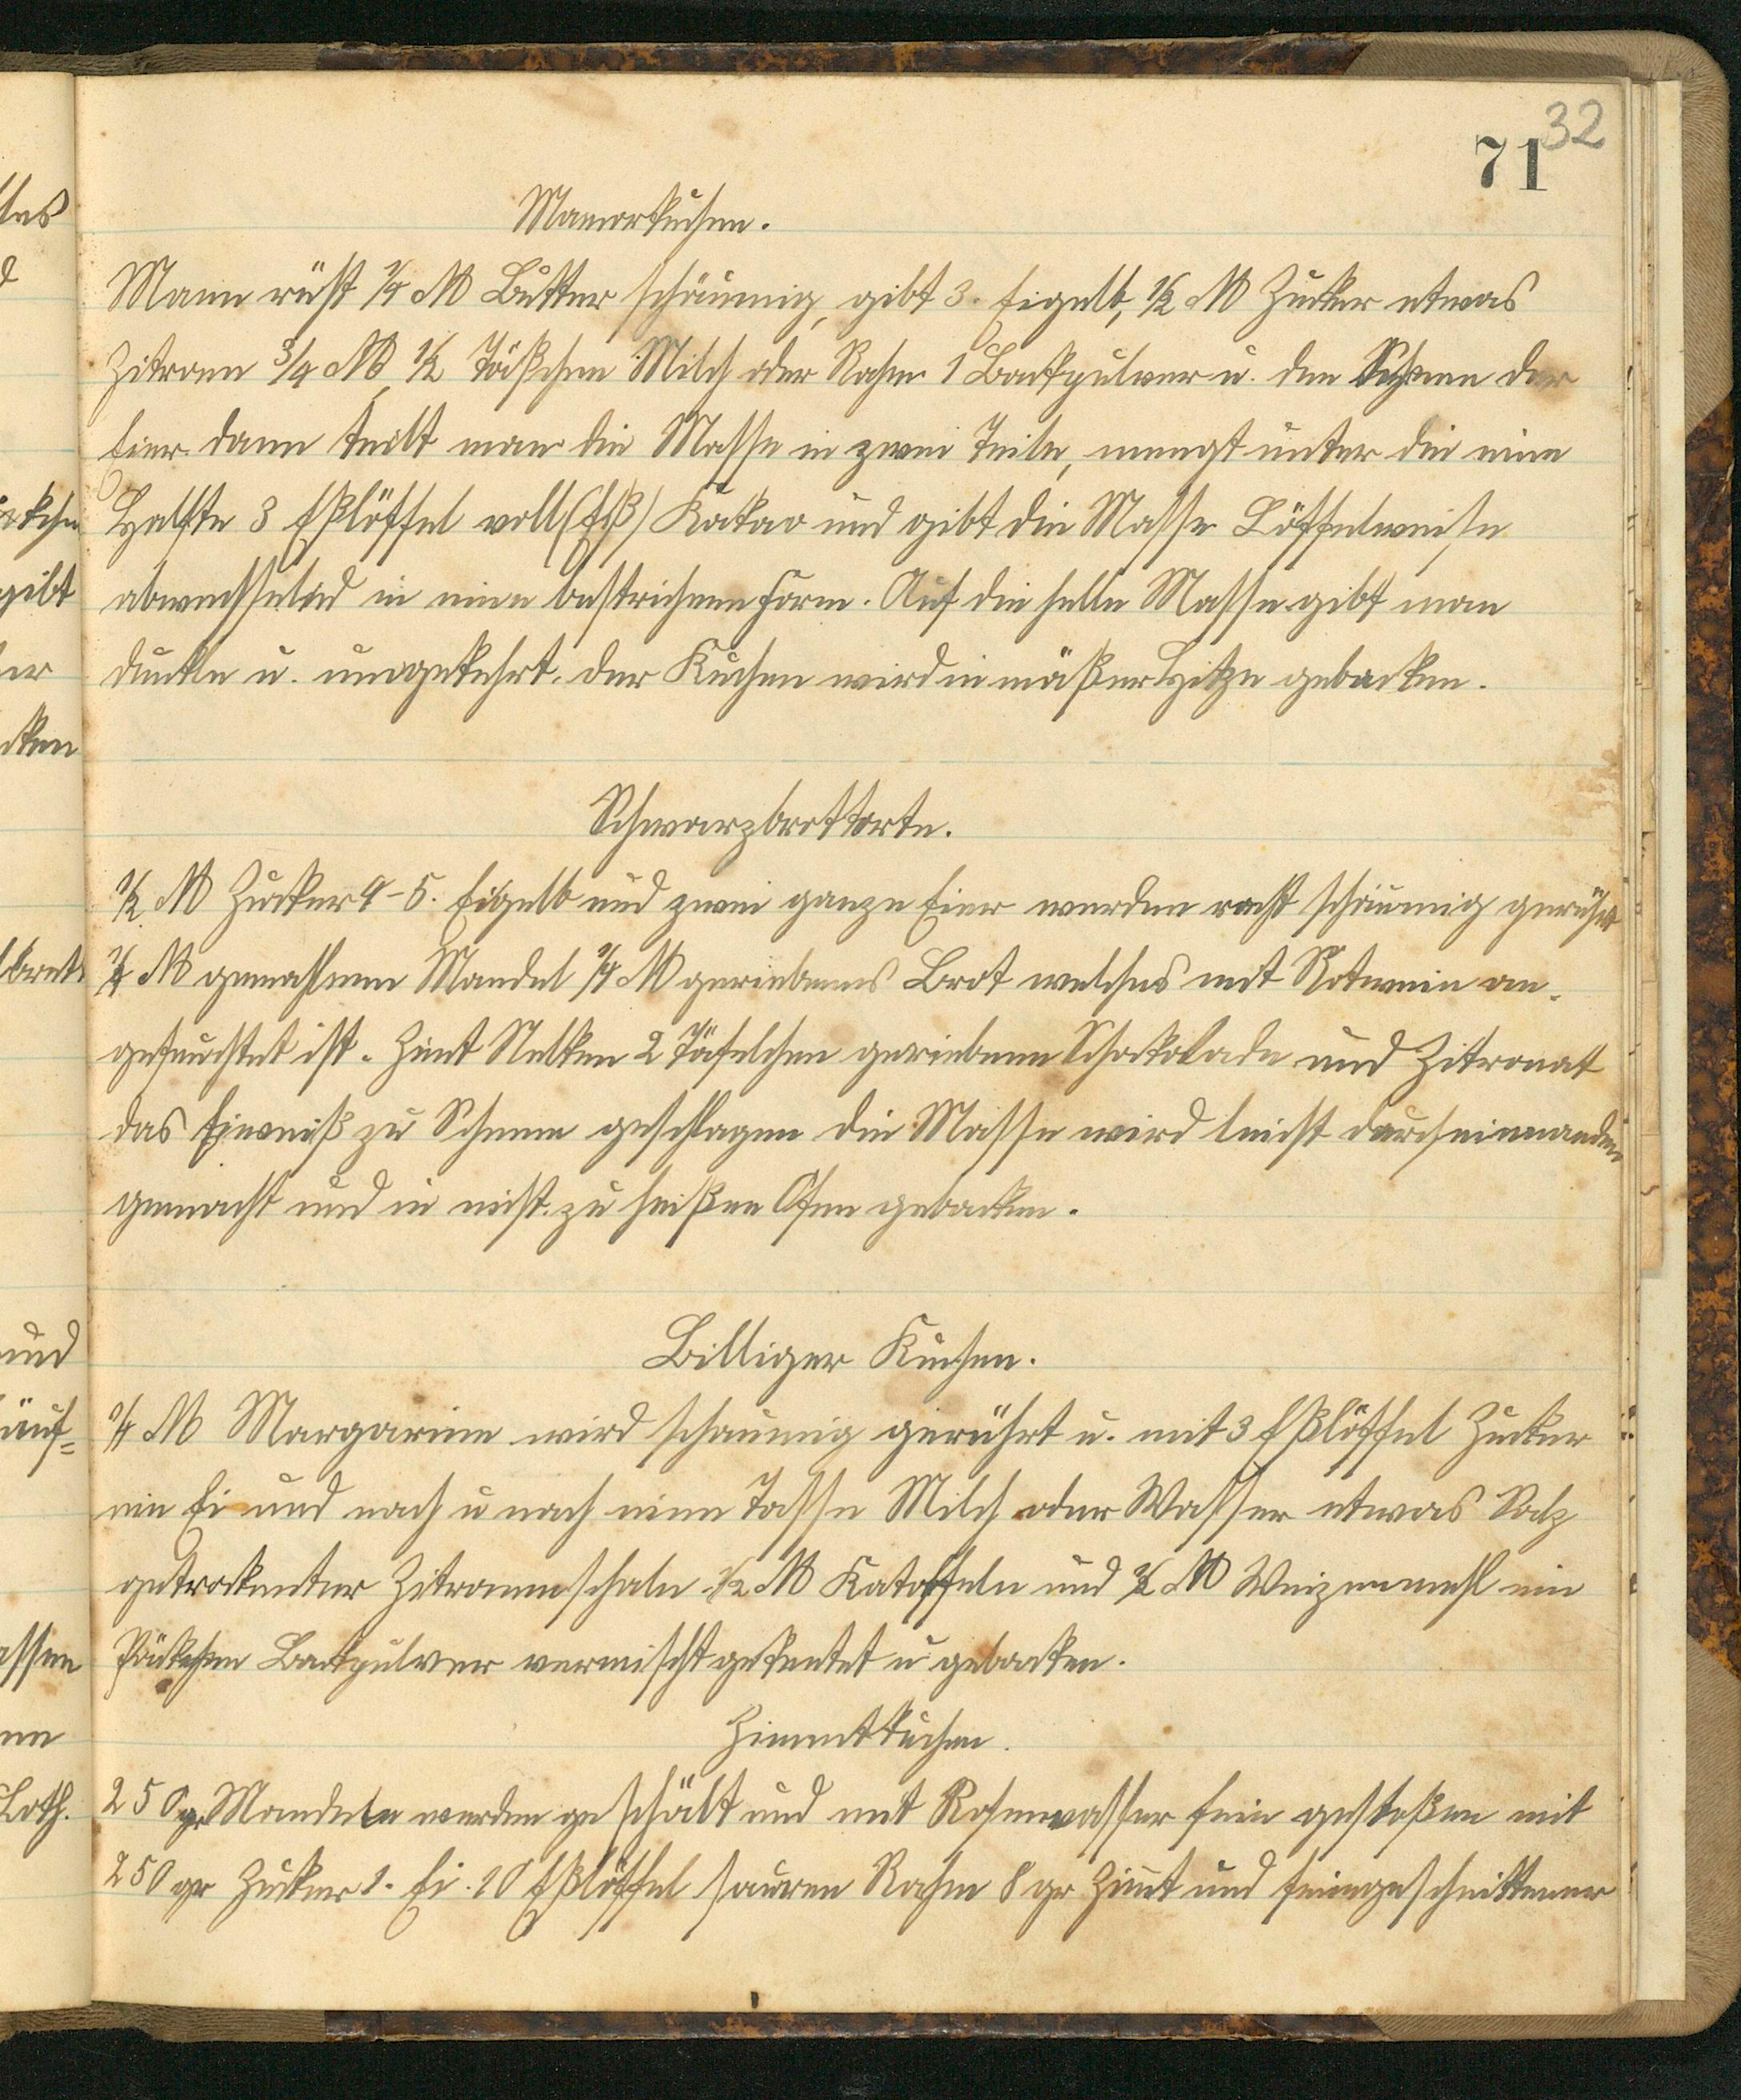 32
71
Mamorkuchen.
Mann rührt 1/4 ℔ Butter schäumig, gibt 3. Eigelb, 1/2 ℔ Zucker etwas
Zitronen 3/4 ℔, 1/2 Täßchen Milch oder Rahm 1 Backpulver u. den Schnee der
Eier dann teilt man die Masse in zwei Teile, mengt unter die eine
Halfte 3 Eßlöffel voll (Eß) Kakao und gibt die Masse Löffelweise
abwechselnd in eine bestrichene Form. Auf die helle Masse gibt man
dunkle u. umgekehrt. der Kuchen wird in mäßer Hitze gebacken.
Schwarzbrottorte.
1/2 ℔ Zucker 4-5. Eigelb und zwei ganze Eier werden recht schäumig gerührt
1/4 ℔ gemahlenen Mandel 1/4 ℔ geriebenes Brot welches mit Rotwein an-
gefeuchtet ist. Zimt Nelken 2 Täfelchen geriebene Schokolade und Zitronat
das Eiweiß zu Schnee geschlagen die Masse wird leicht durcheinnander
gemacht und in nicht zu heißen Ofen gebacken.
Billiger Kuchen.
1/4 ℔ Margarine wird schaumig gerührt u. mit 3 Eßlöffel Zucker
ein Ei und nach u nach einen Tasse Milch oder Wasser etwas Salz
getrockenter Zitronenschale 1/2 ℔ Katoffeln und ℔ Weizenmehl ein
Päckchen Backpulver vermischt geknetet u gebacken.
Zimmtkuchen.
250 gr Mandeln werden geschält und mit Rosenwasser fein gestoßen mit
250 gr Zucker 1. Ei. 10 Eßlöffel sauren Rahm 8 gr Zimt und feingeschnittener